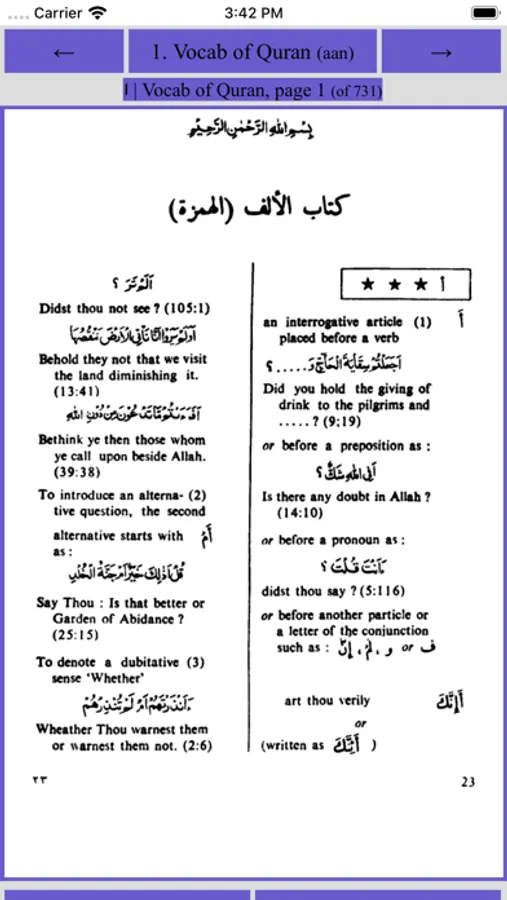 Carrier 3:42 PM
← 1. Vocab of Quran (aan) →
| Vocab of Quran, page 1 (of 731)
بِسْمِ اللهِ الرَّحْمٰنِ الرَّحِيْمِ
كتاب الألف (الهمزة)
أ ★ ★ ★
an interrogative article (1) أَ
placed before a verb
اَجَعَلْتُمْ سِقَايَةَ الْحَآجِّ وَ.....؟
Did you hold the giving of
drink to the pilgrims and
.....? (9;19)
or before a preposition as :
اَفِي اللهِ شَكٌّ ؟
Is there any doubt in Allah ?
(14:10)
or before a pronoun as :
ءَاَنْتَ قُلْتَ ؟
didst thou say ? (5:116)
or before another particle or
a letter of the conjunction
such as : ف or و , لَمْ , إِنَّ
art thou verily أَإِنَّكَ
or
(written as أَئِنَّكَ )
اَلَمْ تَرَ ؟
Didst thou not see ? (105:1)
اَوَلَمْ يَرَوْا اَنَّا نَأْتِي الْاَرْضَ نَنْقُصُهَا
Behold they not that we visit
the land diminishing it.
(13:41)
اَفَرَءَيْتُمْ مَّا تَدْعُوْنَ مِنْ دُوْنِ اللهِ
Bethink ye then those whom
ye call upon beside Allah.
(39:38)
To introduce an alterna- (2)
tive question, the second
alternative starts with أَمْ
as :
قُلْ اَذٰلِكَ خَيْرٌ اَمْ جَنَّةُ الْخُلْدِ
Say Thou : Is that better or
Garden of Abidance ?
(25:15)
To denote a dubitative (3)
sense ‘Whether’
ءَاَنْذَرْتَهُمْ اَمْ لَمْ تُنْذِرْهُمْ
Wheather Thou warnest them
or warnest them not. (2:6)
٢٣ 23